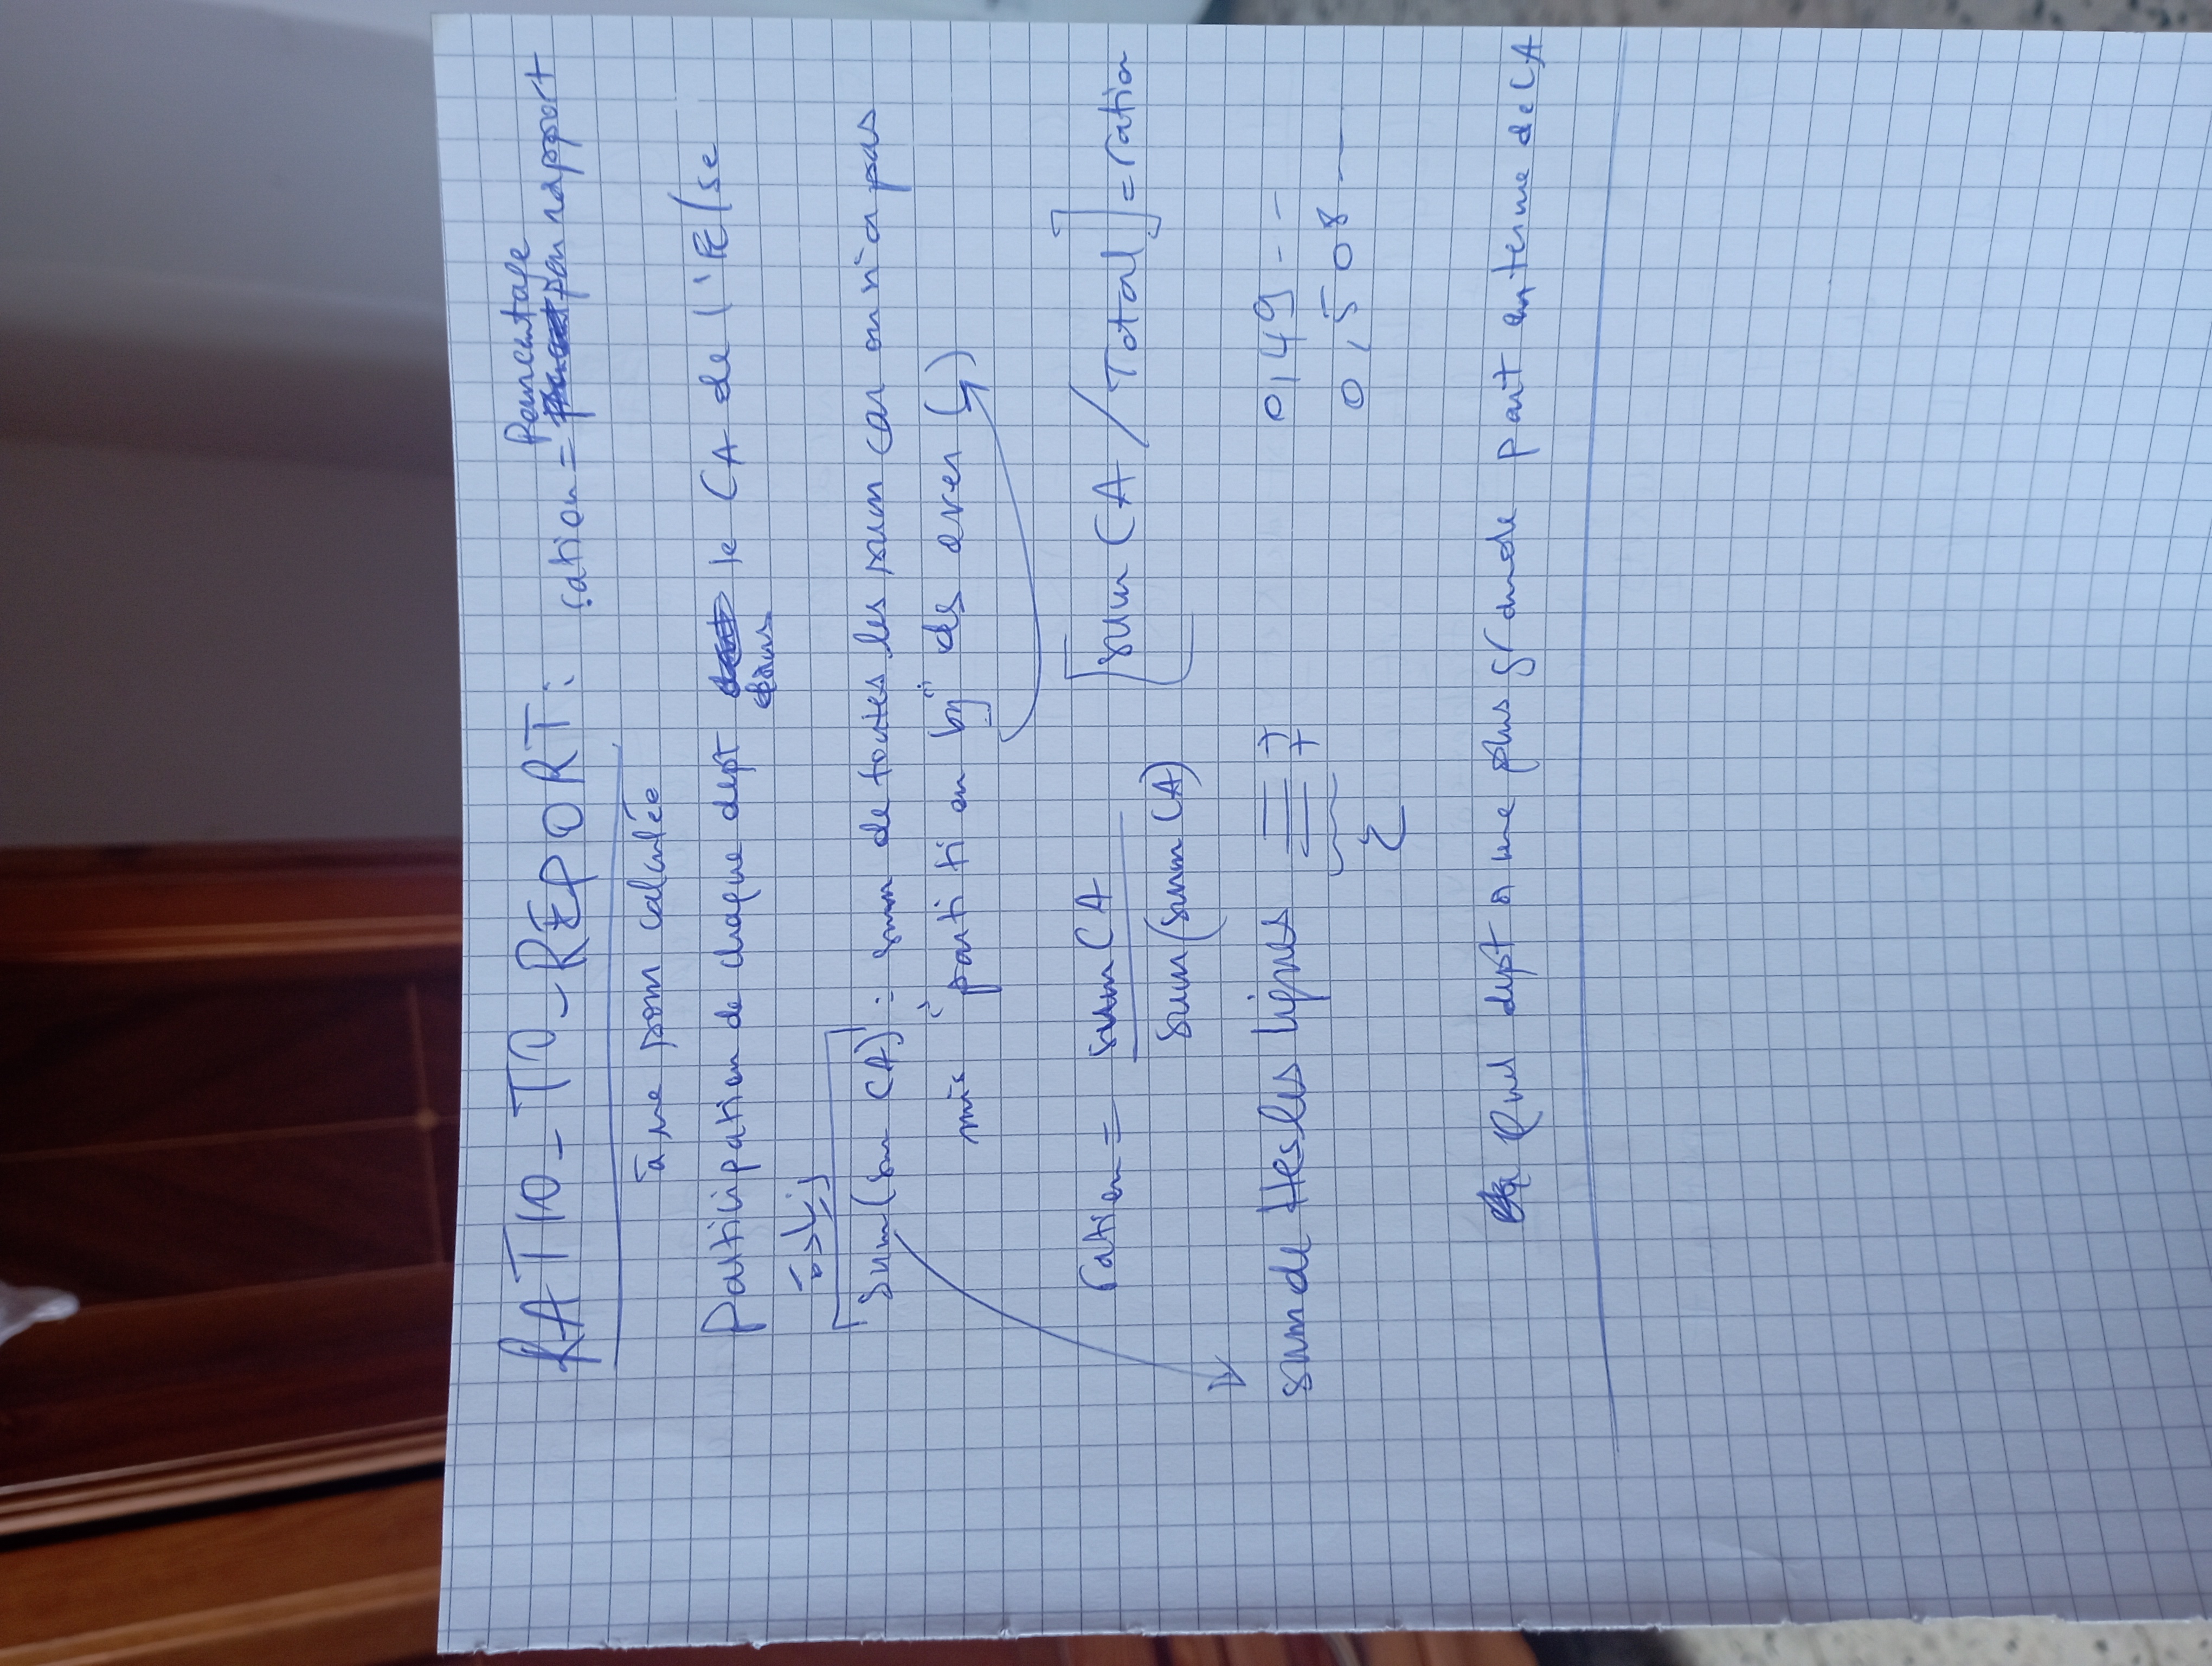 RATIO-TO-REPORT: ration = Pourcentage par rapport
à une som calculée
Participation de chaque dept dans le CA de l'E/se
زيادة
Sum(Sum CA) : sum de toutes les sum car on n'a pas
mis "partition by" ds over ( )
ration = sum CA / sum(sum CA) [sum CA / Total] = ration
sum de ttes les lignes + +
0,49 --
Σ 0,508 —
Quel dept a une plus grande part en terme de CA